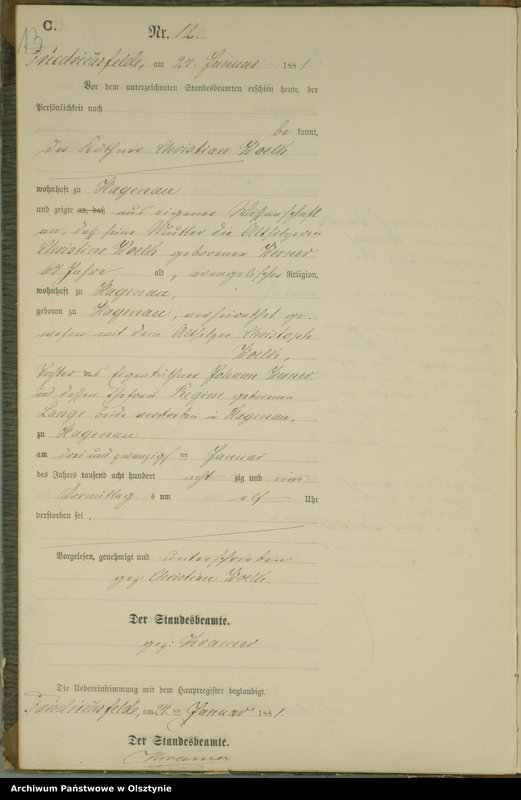 C.
13
Nr. 12.
Friedrichsfelde, am 24. Januar 1881
Vor dem unterzeichneten Standesbeamten erschien heute, der
Persönlichkeit nach
be kannt,
der Käthner Christian Woelk
wohnhaft zu Hagenau
und zeigte an, daß aus eigener Wissenschaft
an, daß seine Mutter die Altsitzerin
Christine Woelk geborenen Werner
67 Jahre alt, evangelischer Religion,
wohnhaft zu Hagenau,
geboren zu Hagenau, verheirathet ge-
wesen mit dem Altsitzer Christoph
Woelk,
Tochter des Eigenkäthner Johann Werner
und dessen Ehefrau Regine geborenen
Lange beide verstorben in Hagenau,
zu Hagenau
am drei und zwanzigsten Januar
des Jahres tausend acht hundert acht zig und eins
Vormittag s um elf Uhr
verstorben sei.
Vorgelesen, genehmigt und unterschrieben
gez: Christian Woelk.
Der Standesbeamte.
gez: Kramer
Die Uebereinstimmung mit dem Hauptregister beglaubigt.
Friedrichsfelde, am 24. ten Januar 1881.
Der Standesbeamte.
Kramer
Archiwum Państwowe w Olsztynie